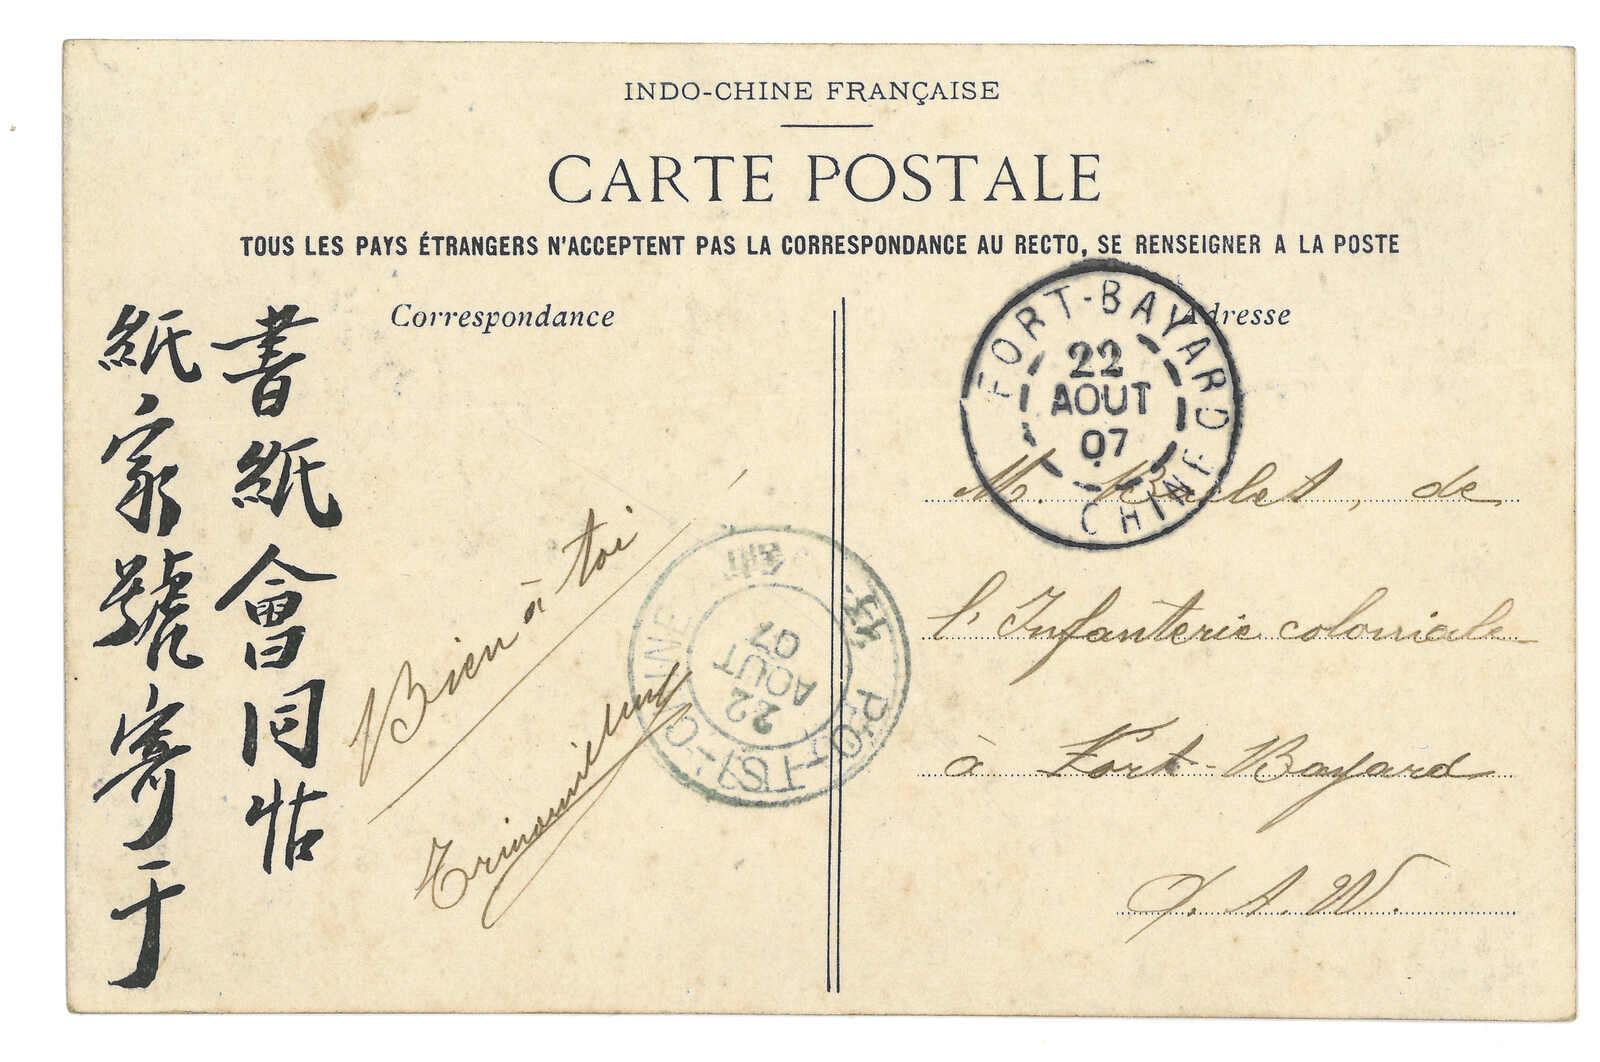 INDO-CHINE FRANÇAISE
CARTE POSTALE
TOUS LES PAYS ÉTRANGERS N'ACCEPTENT PAS LA CORRESPONDANCE AU RECTO, SE RENSEIGNER A LA POSTE
Correspondance
Adresse
書紙會同怙
紙家號寄于
Bien à toi
FORT-BAYARD
22
AOUT
07
CHINE
22
AOUT
07
M. , de
l'Infanterie coloniale
à Fort-Bayard